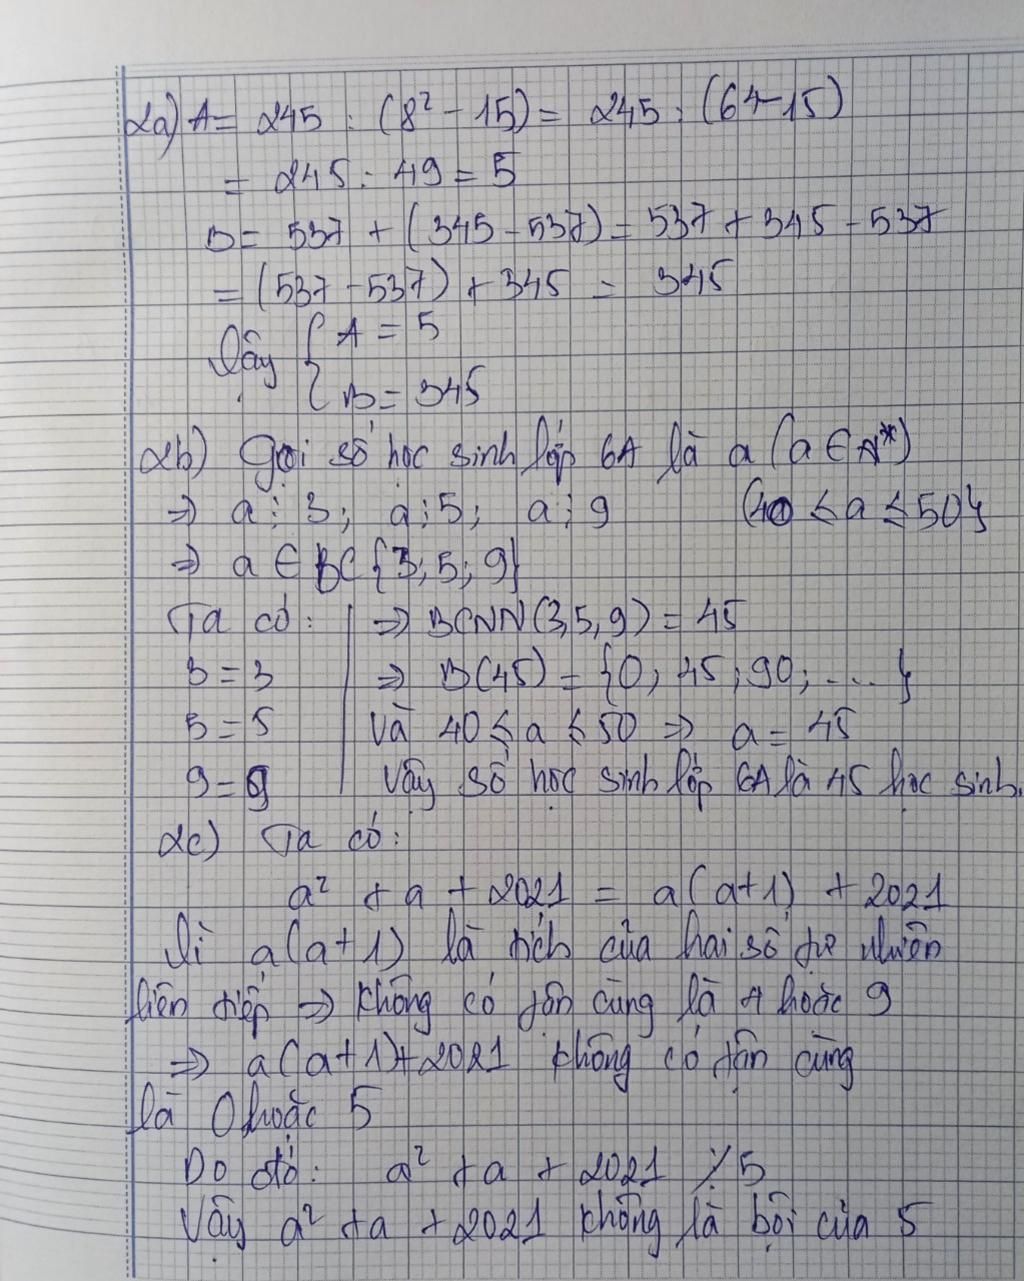 2a) A = 245 : (8² - 15) = 245 : (64 - 15)
= 245 : 49 = 5
B = 537 + (345 - 537) = 537 + 345 - 537
= (537 - 537) + 345 = 345
Vậy { A = 5
B = 345
2b) Gọi số học sinh lớp 6A là a (a ∈ N*)
⇒ a ⋮ 3; a ⋮ 5; a ⋮ 9 (40 ≤ a ≤ 50}
⇒ a ∈ BC {3; 5; 9}
Ta có: | ⇒ BCNN(3,5,9) = 45
3 = 3 | ⇒ B(45) = {0; 45; 90; .... }
5 = 5 | Và 40 ≤ a ≤ 50 ⇒ a = 45
9 = 9 | Vậy số học sinh lớp 6A là 45 học sinh.
2c) Ta có:
a² + a + 2021 = a(a+1) + 2021
Vì a(a+1) là tích của hai số tự nhiên
liên tiếp ⇒ không có tận cùng là 4 hoặc 9
⇒ a(a+1)+2021 không có tận cùng
là 0 hoặc 5
Do đó: a² + a + 2021 ⋮̸ 5
Vậy a² + a + 2021 không là bội của 5